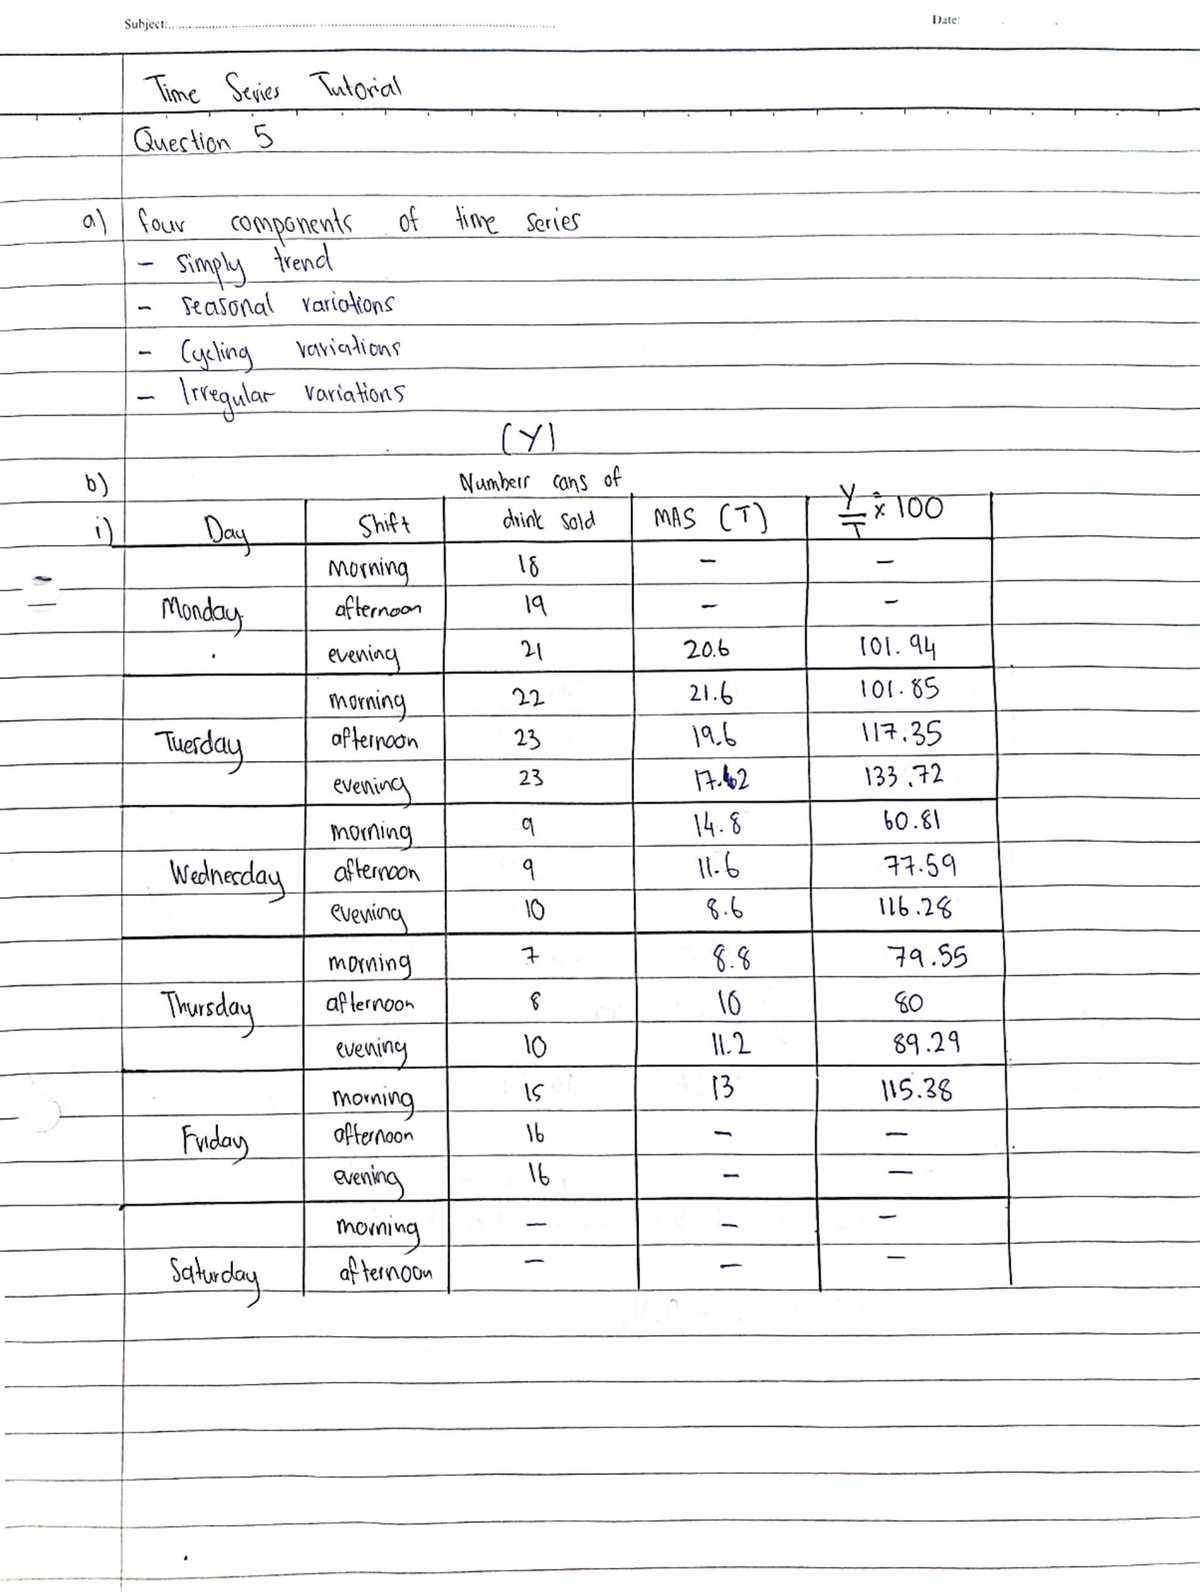 Subject: Date:
Time Series Tutorial
Question 5
a) four components of time series
- Simply trend
- Seasonal variations
- Cycling variations
- Irregular variations
(Y)
b) Numberr cans of
i) Day Shift drink sold MA5 (T) Y/T × 100
morning 18 - -
Monday afternoon 19 - -
evening 21 20.6 101.94
morning 22 21.6 101.85
Tuesday afternoon 23 19.6 117.35
evening 23 17.2 133.72
morning 9 14.8 60.81
Wednesday afternoon 9 11.6 77.59
evening 10 8.6 116.28
morning 7 8.8 79.55
Thursday afternoon 8 10 80
evening 10 11.2 89.29
morning 15 13 115.38
Friday afternoon 16 - -
evening 16 - -
morning - - -
Saturday afternoon - - -